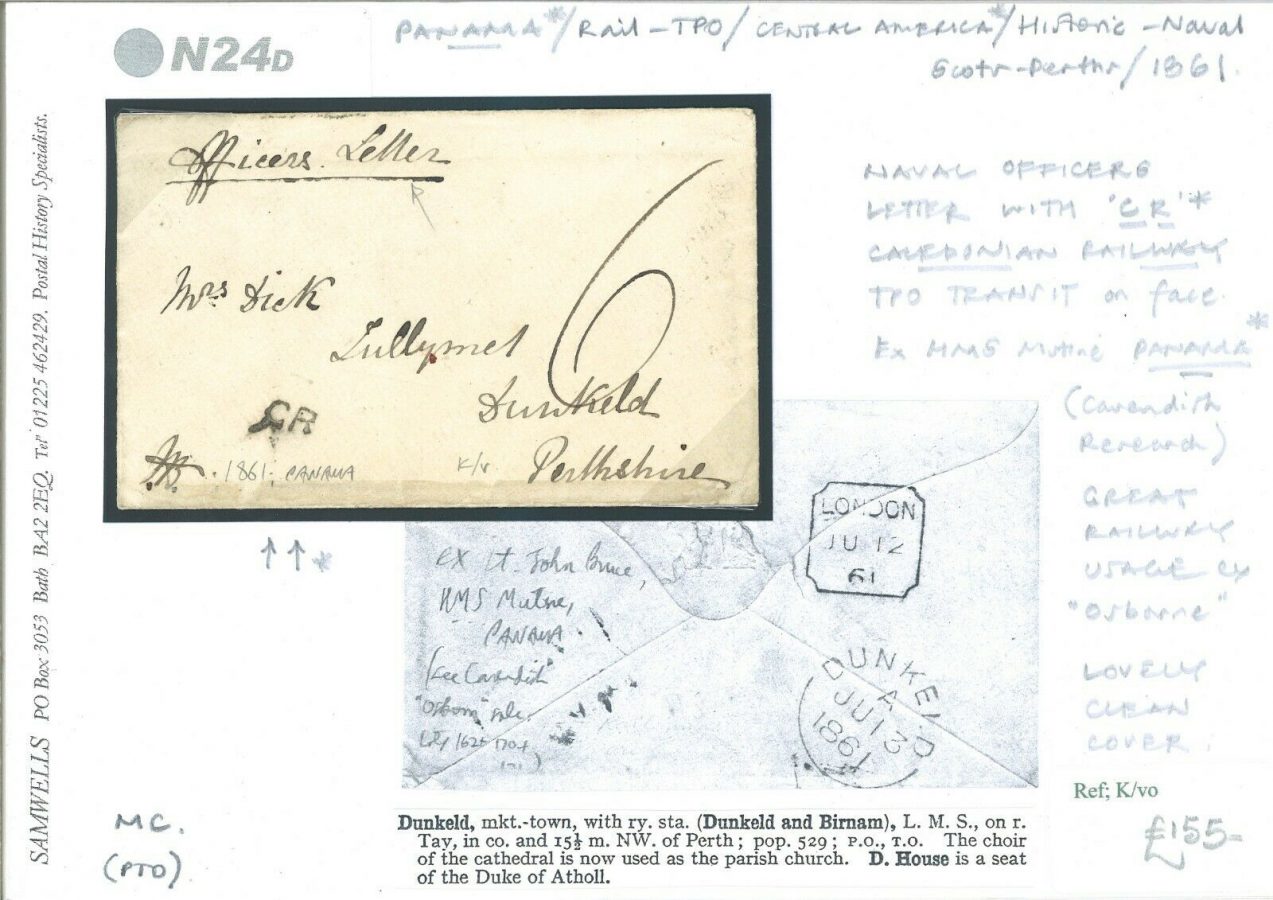 N24D
PANAMA*/Rail-TPO/CENTRAL AMERICA*/Historic-Naval
Scots-Perths/1861.
SAMWELLS PO Box 3053 Bath BA2 2EQ. Tel 01225 462429. Postal History Specialists.
Officers Letter
Mrs Dick
Tullymet
Dunkeld
Perthshire
6
CR
1861; PANAMA
K/v
NAVAL OFFICERS
LETTER WITH 'CR'*
CALEDONIAN RAILWAY
TPO TRANSIT on face.
Ex HMS Mutine PANAMA*
(Cavendish
Research)
GREAT
RAILWAY
USAGE ex
"Osborne"
LOVELY
CLEAN
COVER.
ex Lt. John Bruce,
HMS Mutine,
PANAMA.
(See Cavendish
"Osborn" sale
LONDON
JU 12
61
DUNKELD
A
JU 13
1861
MC.
(PTO)
Dunkeld, mkt.-town, with ry. sta. (Dunkeld and Birnam), L. M. S., on r.
Tay, in co. and 15½ m. NW. of Perth; pop. 529; P.O., T.O. The choir
of the cathedral is now used as the parish church. D. House is a seat
of the Duke of Atholl.
Ref; K/vo
£155-